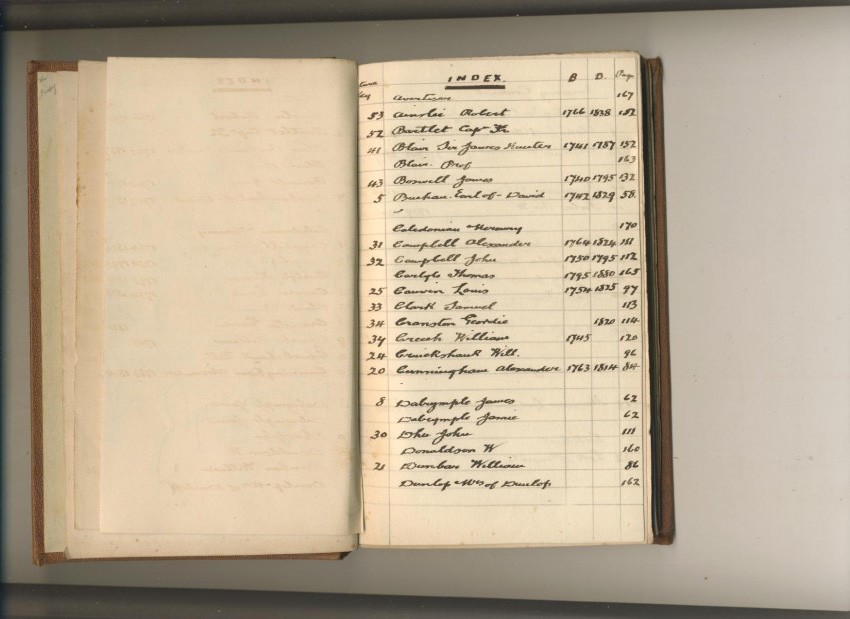 INDEX. B D. Page
167
53 Ainslie Robert 1766 1838 152
52 Bartlet Capt
41 Blair Sir James Hunter 1741 1787 152
Blair. Prof 163
43 Boswell James 1740 1795 132
5 Buchan. Earl of - David 1742 1829 58.
Caledonian Mercury 170
31 Campbell Alexander 1764 1824 111
32 Campbell John 1750 1795 112
Carlyle Thomas 1795 1880 165
25 Cauvin Louis 1754 1825 97
33 Clark Samuel 113
34 Cranston Geordie 1820 114
39 Creech William 1745 120
24 Cruickshank Will. 96
20 Cunningham Alexander 1763 1814 84
8 Dalrymple James 62
Dalrymple Jamie 62
30 Dhu John 111
Donaldson W 160
21 Dunbar William 86
Dunlop Mrs of Dunlop 162